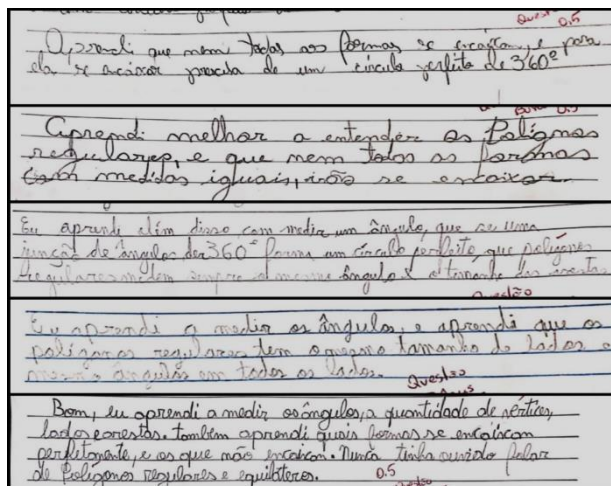 Questão
0.5
Aprendi que nem todas as formas se encaixam, e para
ela se encaixar precisa de um círculo perfeito de 360º
0.5
Aprendi melhor a entender os Polignos
regulares, e que nem todos as formas
com medidas iguais, irão se encaixar.
Eu aprendi além disso com medir um ângulo, que se uma
junção de ângulos der 360º forma um círculo perfeito, que polígonos
regulares medem sempre o mesmo ângulo & o tamanho das arestas
Questão
Eu aprendi a medir os ângulos, e aprendi que os
polígonos regulares tem o mesmo tamanho de lados e
mesmo ângulos em todos os lados.
Questão
Bom, eu aprendi a medir os ângulos, a quantidade de vértices,
lados e arestas. também aprendi quais formas se encaixam
perfeitamente, e os que não encaixam. Nunca tinha ouvido falar
de Polígonos regulares e equiláteros.
0.5
Questão